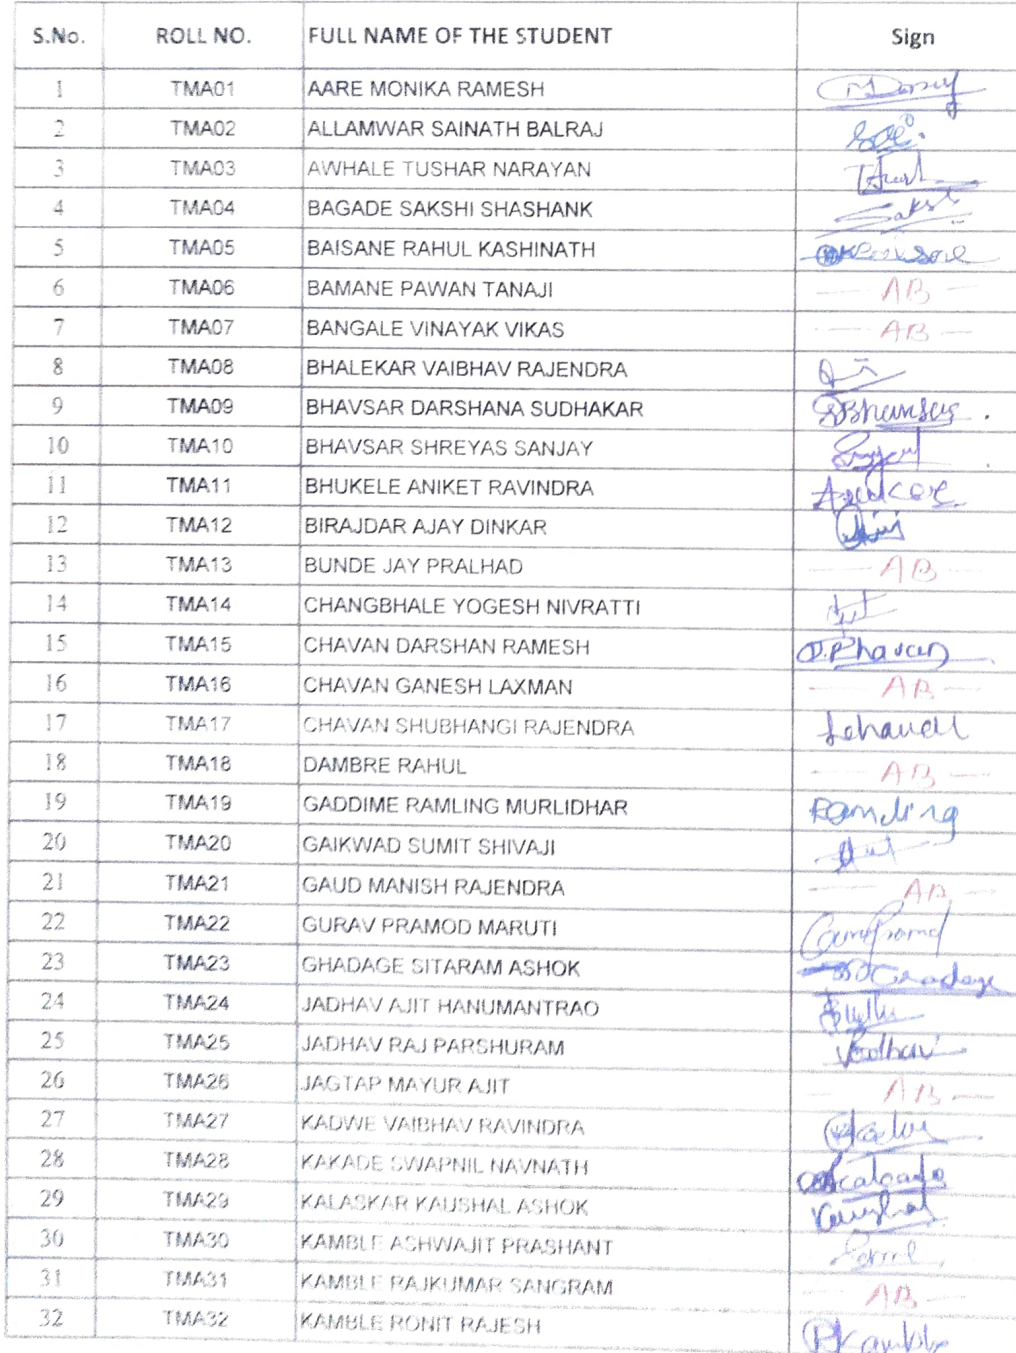 S.No. ROLL NO. FULL NAME OF THE STUDENT Sign
1 TMA01 AARE MONIKA RAMESH
2 TMA02 ALLAMWAR SAINATH BALRAJ
3 TMA03 AWHALE TUSHAR NARAYAN
4 TMA04 BAGADE SAKSHI SHASHANK Sakshi
5 TMA05 BAISANE RAHUL KASHINATH
6 TMA06 BAMANE PAWAN TANAJI AB
7 TMA07 BANGALE VINAYAK VIKAS AB
8 TMA08 BHALEKAR VAIBHAV RAJENDRA
9 TMA09 BHAVSAR DARSHANA SUDHAKAR
10 TMA10 BHAVSAR SHREYAS SANJAY
11 TMA11 BHUKELE ANIKET RAVINDRA
12 TMA12 BIRAJDAR AJAY DINKAR
13 TMA13 BUNDE JAY PRALHAD AB
14 TMA14 CHANGBHALE YOGESH NIVRATTI
15 TMA15 CHAVAN DARSHAN RAMESH
16 TMA16 CHAVAN GANESH LAXMAN AB
17 TMA17 CHAVAN SHUBHANGI RAJENDRA
18 TMA18 DAMBRE RAHUL AB
19 TMA19 GADDIME RAMLING MURLIDHAR Ramling
20 TMA20 GAIKWAD SUMIT SHIVAJI
21 TMA21 GAUD MANISH RAJENDRA AB
22 TMA22 GURAV PRAMOD MARUTI
23 TMA23 GHADAGE SITARAM ASHOK
24 TMA24 JADHAV AJIT HANUMANTRAO
25 TMA25 JADHAV RAJ PARSHURAM
26 TMA26 JAGTAP MAYUR AJIT AB
27 TMA27 KADWE VAIBHAV RAVINDRA
28 TMA28 KAKADE SWAPNIL NAVNATH
29 TMA29 KALASKAR KAUSHAL ASHOK Kaushal
30 TMA30 KAMBLE ASHWAJIT PRASHANT
31 TMA31 KAMBLE RAJKUMAR SANGRAM AB
32 TMA32 KAMBLE RONIT RAJESH